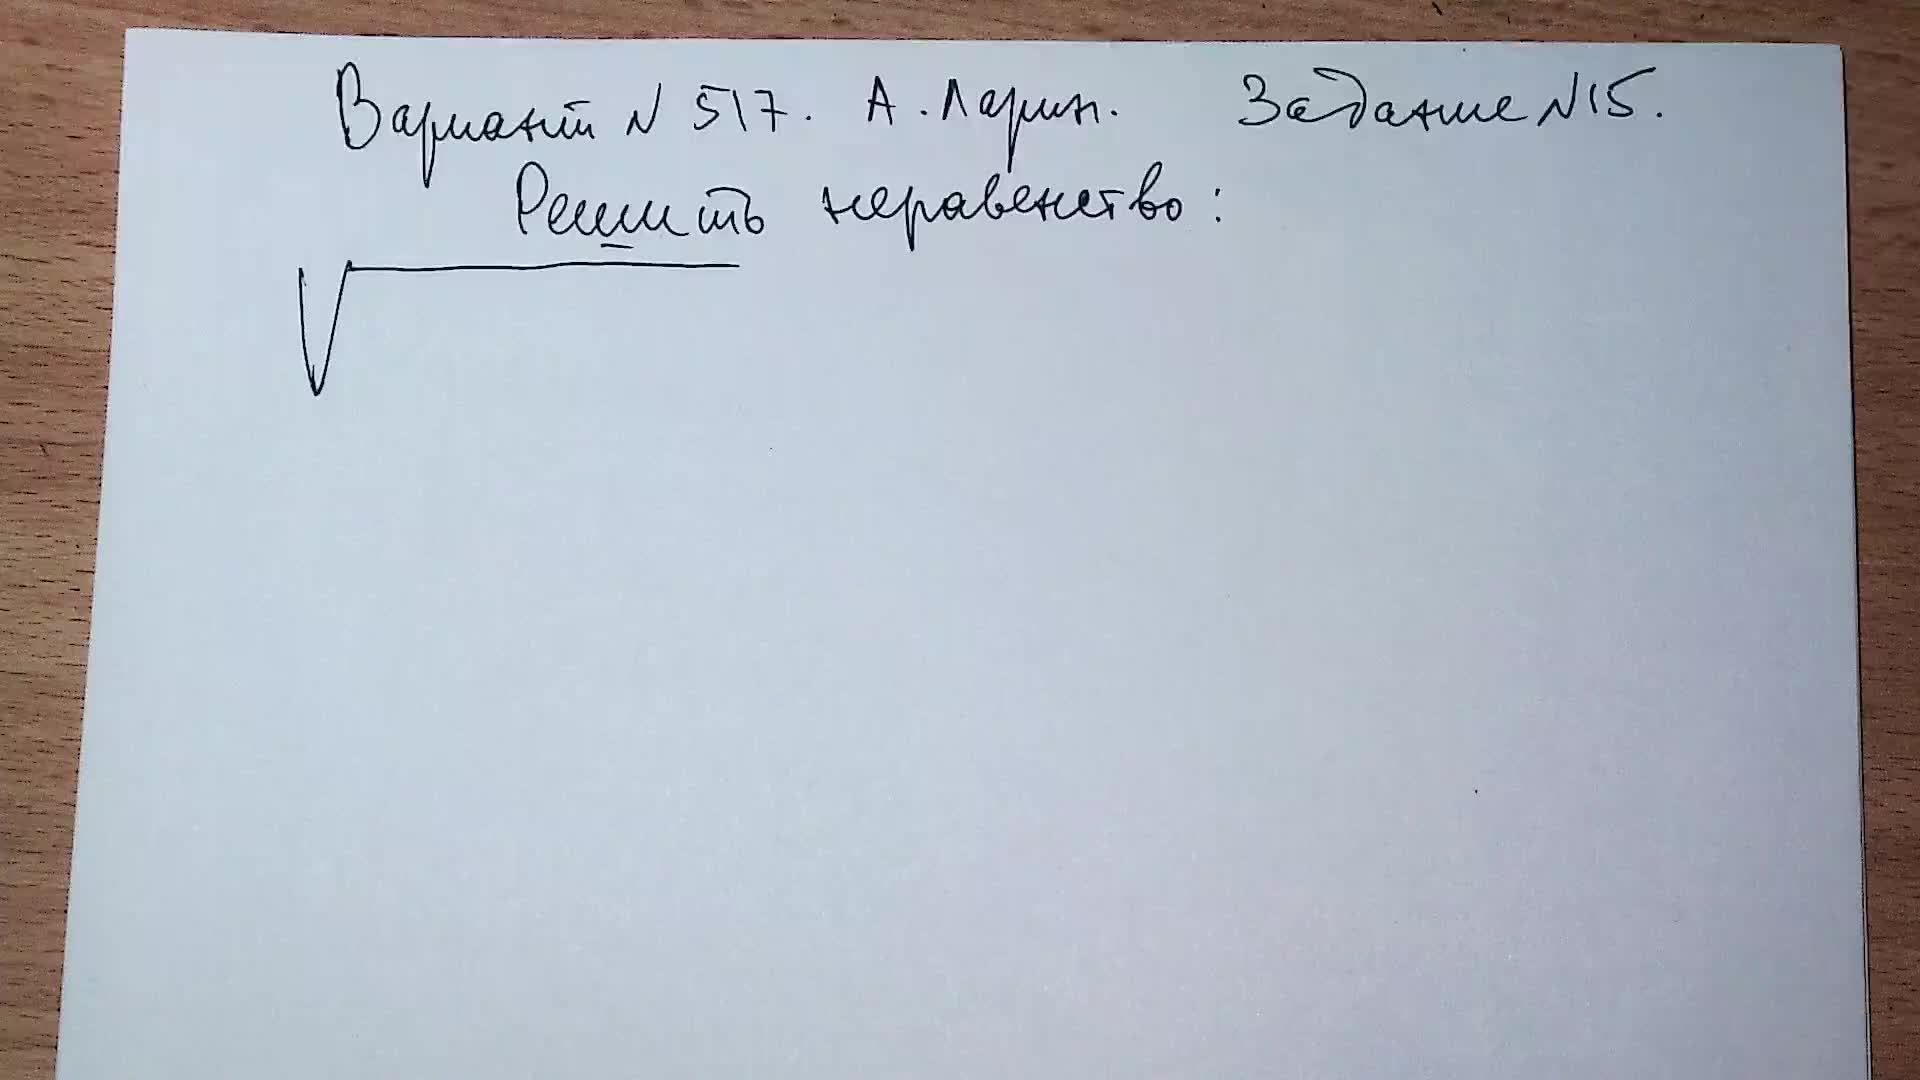 Вариант N 517. А. Ларин. Задание N15.
Решить неравенство:
√